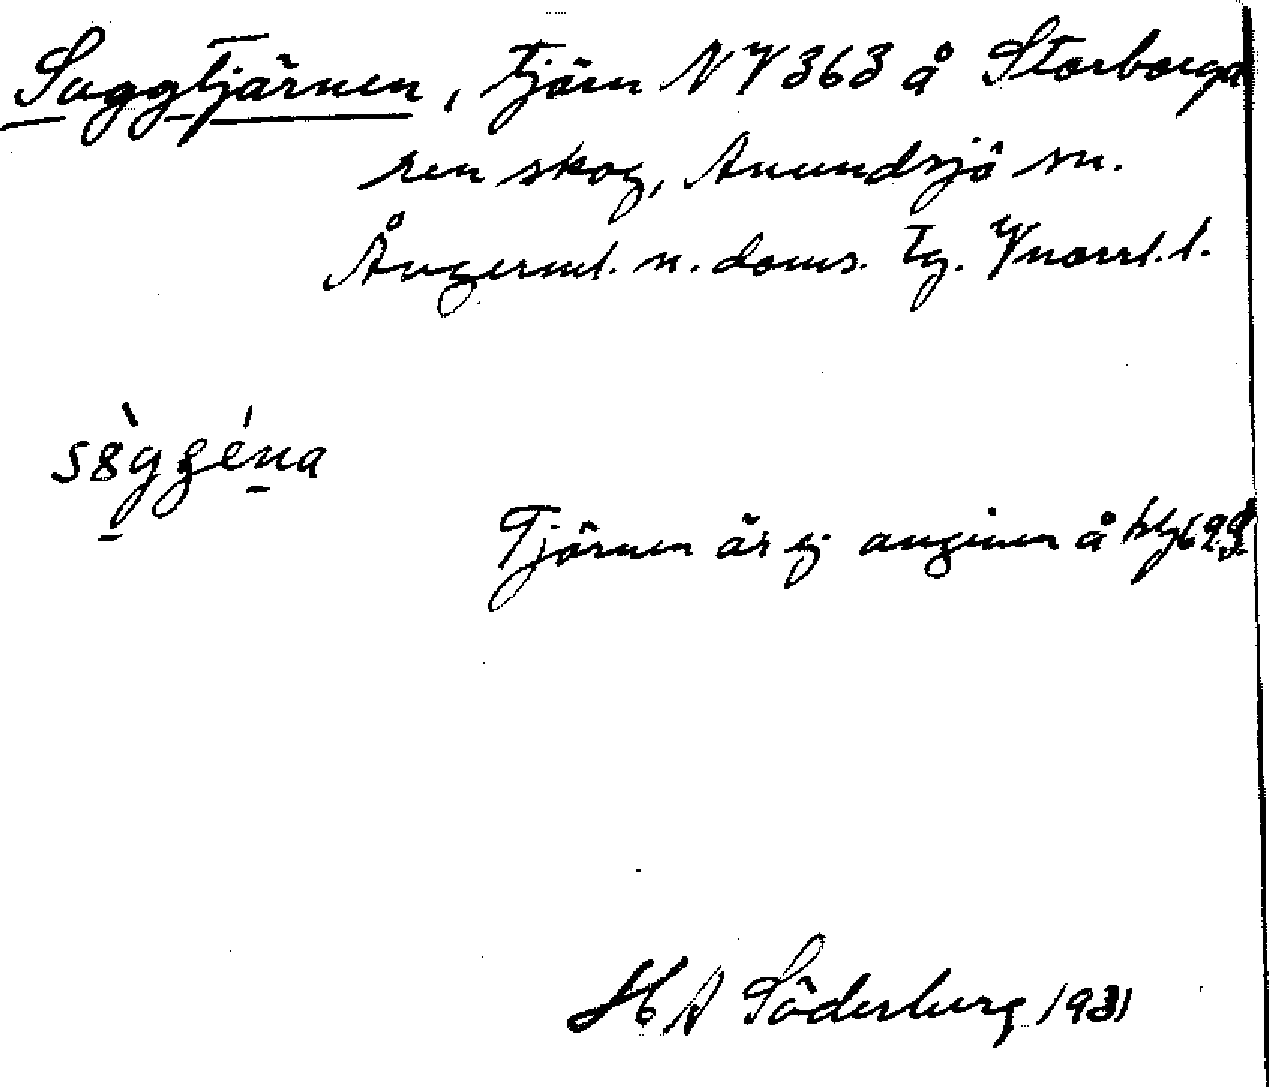 Saggtjärnen, tjärn NV 363 å Storborga
ren skog, Anundsjö sn.
Ångerml. n. doms. tg. Vnorrl. l.
Tjärnen är ej angiven å
H A Söderberg 1931